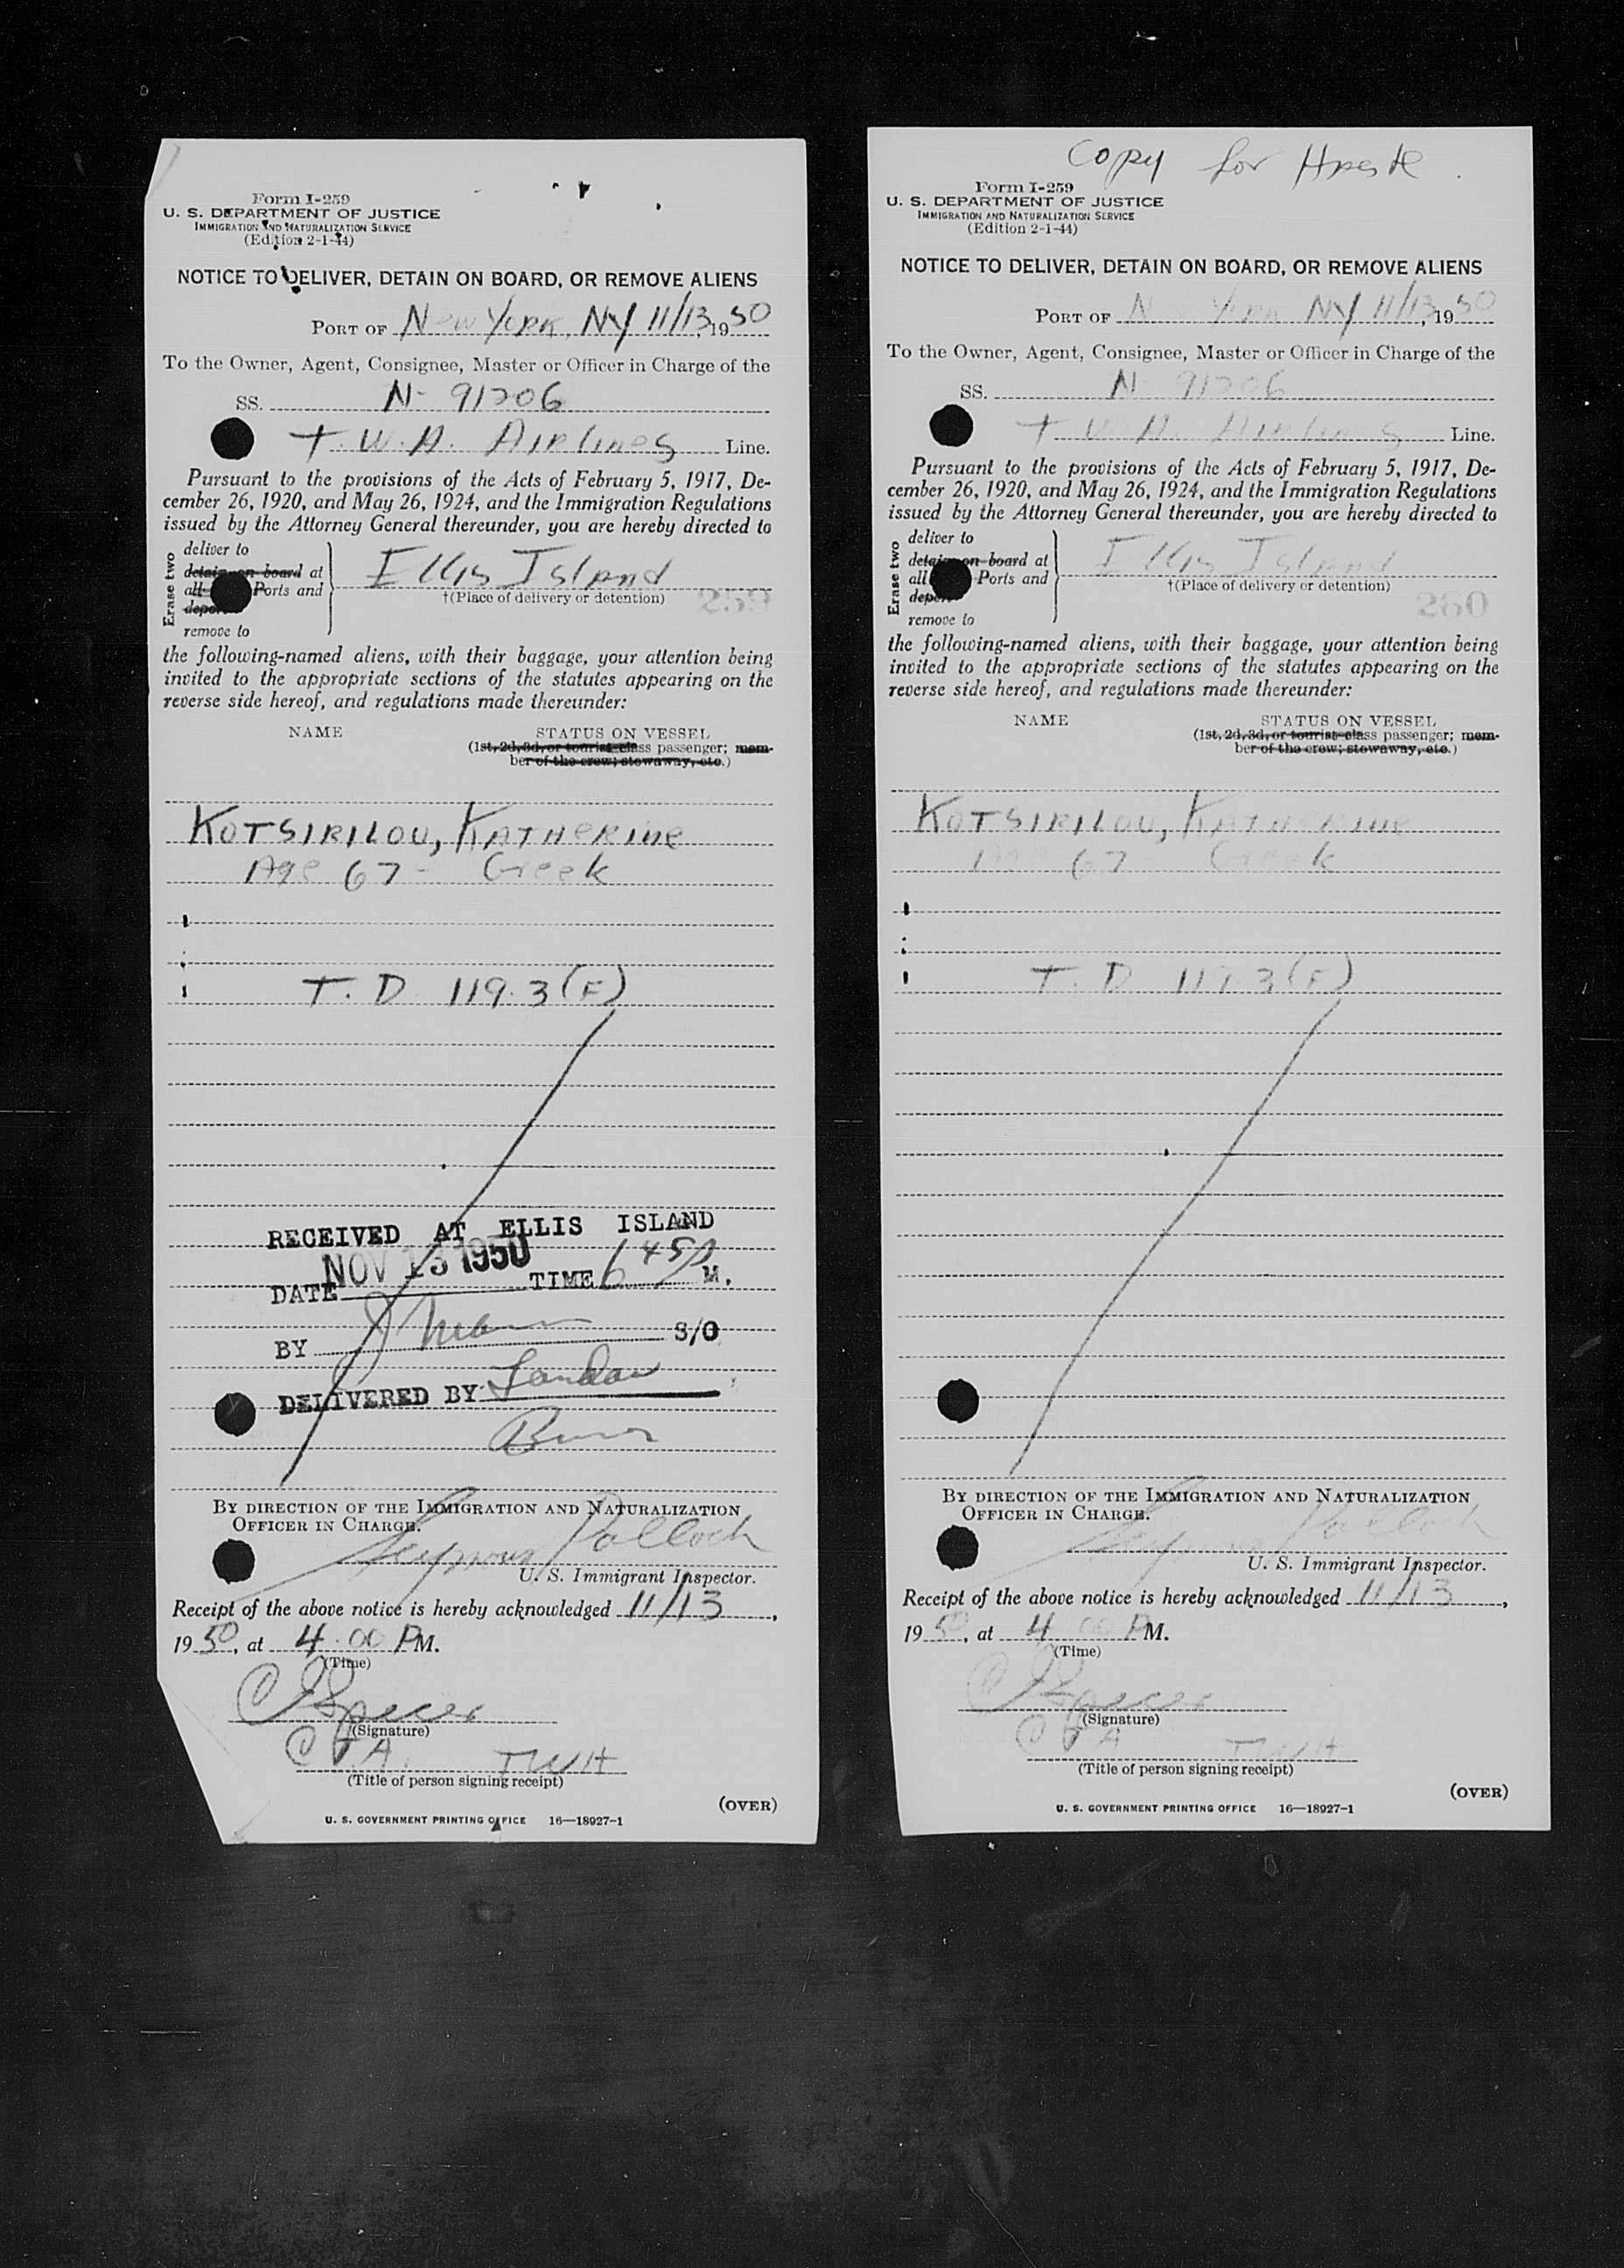 Form I-259
U. S. DEPARTMENT OF JUSTICE
IMMIGRATION AND NATURALIZATION SERVICE
(Edition 2-1-44)
NOTICE TO DELIVER, DETAIN ON BOARD, OR REMOVE ALIENS
PORT OF New York, NY 11/13, 1950
To the Owner, Agent, Consignee, Master or Officer in Charge of the
SS. N- 91206
T. W. A. Airlines Line.
Pursuant to the provisions of the Acts of February 5, 1917, De-
cember 26, 1920, and May 26, 1924, and the Immigration Regulations
issued by the Attorney General thereunder, you are hereby directed to
Erase two
deliver to
detain on board at
all Ports and
remove to
Ellis Island
†(Place of delivery or detention)
259
the following-named aliens, with their baggage, your attention being
invited to the appropriate sections of the statutes appearing on the
reverse side hereof, and regulations made thereunder:
NAME STATUS ON VESSEL
(1st, 2d, 3d, or tourist-class passenger; mem-
ber of the crew; stowaway, etc.)
KOTSIRILOU, KATHERINE
Age 67 - Greek
T. D 119.3 (F)
RECEIVED AT ELLIS ISLAND
DATE NOV 13 1950 TIME 6 45 P M.
BY S/O
DELIVERED BY Landau
BY DIRECTION OF THE IMMIGRATION AND NATURALIZATION
OFFICER IN CHARGE.
Seymour Pollock
U. S. Immigrant Inspector.
Receipt of the above notice is hereby acknowledged 11/13,
1950, at 4.00 PM.
(Time)
(Signature)
(Title of person signing receipt)
(OVER)
U. S. GOVERNMENT PRINTING OFFICE 16—18927-1
Copy for
Form I-259
U. S. DEPARTMENT OF JUSTICE
IMMIGRATION AND NATURALIZATION SERVICE
(Edition 2-1-44)
NOTICE TO DELIVER, DETAIN ON BOARD, OR REMOVE ALIENS
PORT OF New York NY 11/13, 1950
To the Owner, Agent, Consignee, Master or Officer in Charge of the
SS. N 91206
T. W. A. Airlines Line.
Pursuant to the provisions of the Acts of February 5, 1917, De-
cember 26, 1920, and May 26, 1924, and the Immigration Regulations
issued by the Attorney General thereunder, you are hereby directed to
Erase two
deliver to
detain on board at
all Ports and
remove to
Ellis Island
†(Place of delivery or detention)
260
the following-named aliens, with their baggage, your attention being
invited to the appropriate sections of the statutes appearing on the
reverse side hereof, and regulations made thereunder:
NAME STATUS ON VESSEL
(1st, 2d, 3d, or tourist-class passenger; mem-
ber of the crew; stowaway, etc.)
KOTSIRILOU, KATHERINE
Age 67 Greek
T. D 119.3 (F)
BY DIRECTION OF THE IMMIGRATION AND NATURALIZATION
OFFICER IN CHARGE.
Seymour Pollock
U. S. Immigrant Inspector.
Receipt of the above notice is hereby acknowledged 11/13,
1950, at 4 00 PM.
(Time)
(Signature)
(Title of person signing receipt)
(OVER)
U. S. GOVERNMENT PRINTING OFFICE 16—18927-1